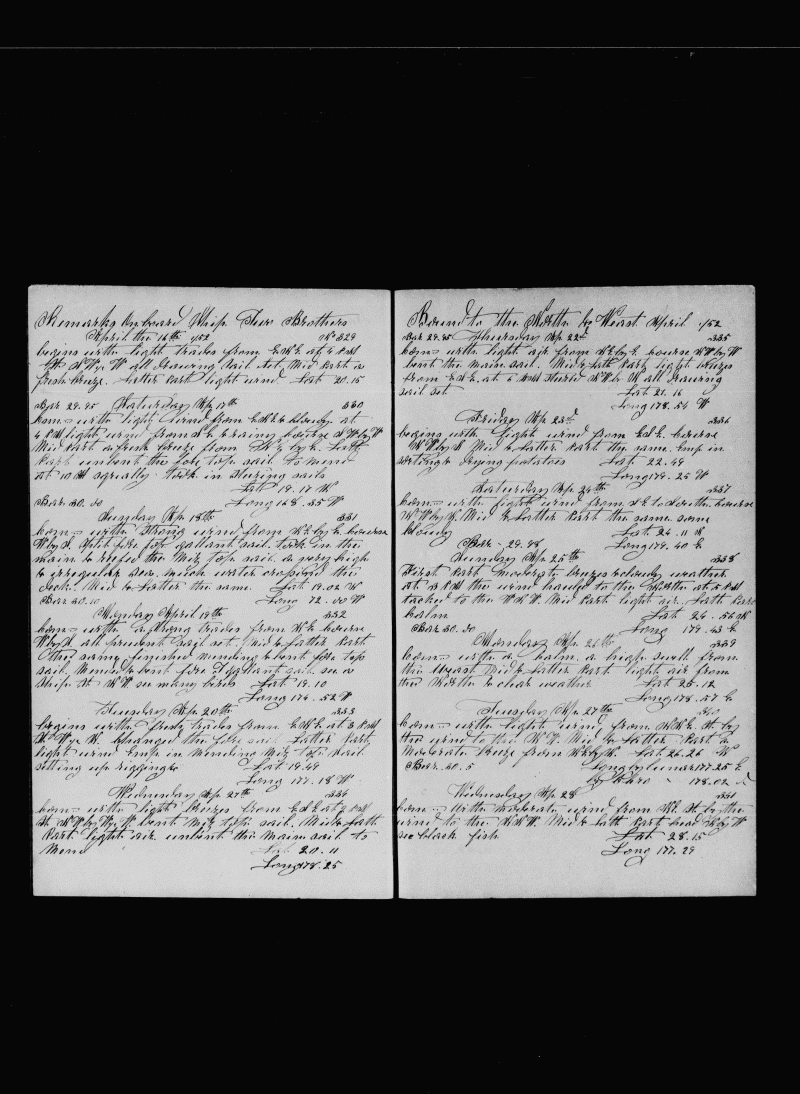 Remarks on board Ship Two Brothers
April the 16th 1/52 No 329
begins with light trades from E.N.E. at 4 P.M.
St. W by W all drawing sail set Mid Part a
fresh breeze. Latter Part light wind Lat 20.15
Bar 29.95 Saturday Ap 17th 330
com= with light from E.N.E. & cloudy. at
4 P.M light wind from & rainy course W by W
Mid Part a fresh breeze from by E. Latt
Part unbent the fore top sail to mend
at 10 squally took in studing sails
Lat 19.17
Bar. 30.00 Long 168.55 W
Sunday Ap 18th 331
com= with strong wind from N.E. by E. course
W by fore top gallant sail. took in the
main & reefed the Miz top sail. a very high
& irregular sea. much water crossed the
deck. Mid & Latter the same Lat 19.02 N
Bar 30.10 Long 72.00 W
Monday April 19th 332
com= with a strong trades from N.E. course
W by all prudent sail set. Mid & latter Part
the same. finished mending & bent fore top
sail. Mend & bent fore T gallant sail. see a
ship. see many birds Lat 19.10
Long 174.52 W
Tuesday Ap 20th 333
begins with fresh trades from E.N.E. at 3 P.M
changed the fore sail. Latter Part
light wind Emp in mending Miz top sail
setting up rigging & Lat 19.49
Long 177.18 W
Wednesday Ap 27th 334
com= with light breezes from at 2 P.M
bent Miz top sail. Mid & Latt
Part light air unbent the main sail to
mend Lat. 20.11
Long 178.25
Bound to the North by West April 1/52
Bar 29.95 Thursday Ap 22nd 335
com= with light air from N.E. by E. course N W by W
bent the main sail. Mid & Latt Part light breezes
from E.N.E. at 5 A.M Steered N W by W all drawing
sail set Lat 21.16
Long 178.54 W
Friday Ap 23d 336
begins with light wind from course
Mid & Latter Part the same. Emp in
sorting & drying potatoes Lat 22.49
Long 179.25 W
Saturday Ap 24th 337
com= with light wind from to South. course
Mid & Latter Part the same some
cloudy Lat. 24.11 N
Bar - 29.98 Long 179.40 E
Sunday Ap 25th 338
First Part moderate breezes & cloudy weather
at P.M the wind hauled to the North at 5 P.M
tacked to the W.N.W. Mid Part light air. Latt Part
calm Lat 24.56 N
Bar 30.30 Long 179.43 E
Monday Ap 26th 339
com= with a calm. a high swell from
the West Mid & Latter a light air from
the North & clear weather Lat 25.12
Long 178.57 E
Tuesday Ap 27th 340
com= with light wind from by
the wind to the Mid & Latter Part a
Moderate breeze from Lat 26.26
Bar. 30.5 Long by lunar 177.25 E
by Chro - 178.02
Wednesday Ap 28 341
com= With moderate wind from by the
wind to the Mid & Latt Part
see black fish Lat 28.15
Long 177.29